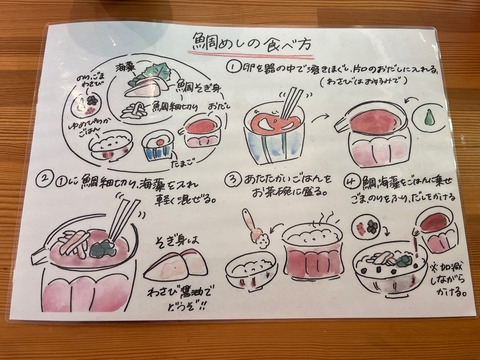 鯛めしの食べ方
海藻
のり、ごま
わさび
鯛そぎ身
鯛細切り
おだし
ゆめぴりか
ごはん
たまご
① 卵を器の中で溶きほぐし、片口のおだしに入れる。
(わさびはお好みで)
② ①に鯛細切り、海藻を入れ
軽く混ぜる。
そぎ身は
わさび醤油で
どうぞ!!
③ あたたかいごはんを
お茶碗に盛る。
④ 鯛、海藻をごはんに乗せ
ごま、のりをふり、だしをかける
※加減
しながら
かける。